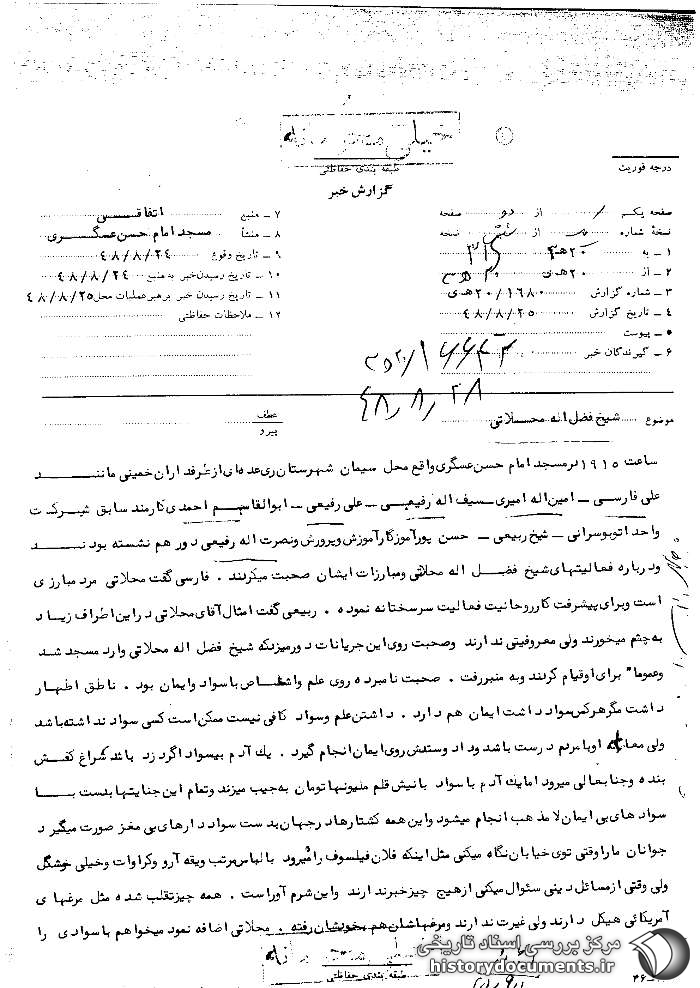 خیلی محرمانه
طبقه بندی حفاظتی
گزارش خبر
درجه فوریت
صفحه یک از دو صفحه
نسخهٔ شماره از نسخه
۱ ـ به ۲۰ هـ ۳ ۳۱۲
۲ ـ از ۲۰ هـ ی
۳ ـ شماره گزارش ۲۰/۱۶۸۰ هـ ی
۴ ـ تاریخ گزارش ۴۸/۸/۲۵
۵ ـ پیوست
۶ ـ گیرندگان خبر
۷ ـ منبع اتفاقی
۸ ـ منشأ مسجد امام حسن عسگری
۹ ـ تاریخ وقوع ۴۸/۸/۲۴
۱۰ ـ تاریخ رسیدن خبر به منبع ۴۸/۸/۲۴
۱۱ ـ تاریخ رسیدن خبر برهبر عملیات محل ۴۸/۸/۲۵
۱۲ ـ ملاحظات حفاظتی
۴۸٫۸٫۲۸
موضوع شیخ فضل اله محلاتی
عطف
پیرو
ساعت ۱۹۱۵ در مسجد امام حسن عسگری واقع محل سیمان شهرستان ری عده ای از طرفداران خمینی مانند
علی فارسی ـ امین اله امیری ـ سیف اله رفیعی ـ علی رفیعی ـ ابوالقاسم احمدی کارمند سابق شرکت
واحد اتوبوسرانی ـ شیخ ربیعی ـ حسن پور آموزگار آموزش و پرورش و نصرت اله رفیعی دور هم نشسته بودند
و درباره فعالیتهای شیخ فضل اله محلاتی و مبارزات ایشان صحبت میکردند . فارسی گفت محلاتی مرد مبارزی
است و برای پیشرفت کار روحانیت فعالیت سرسختانه نموده . ربیعی گفت امثال آقای محلاتی در این اطراف زیاد
به چشم میخورند ولی معروفیتی ندارند و صحبت روی این جریانات دور میزد که شیخ فضل اله محلاتی وارد مسجد شد
و عموما" برای او قیام کردند و به منبر رفت . صحبت نامبرده روی علم و اشخاص با سواد و ایمان بود . ناطق اظهار
داشت مگر هرکس سواد داشت ایمان هم دارد . داشتن علم و سواد کافی نیست ممکن است کسی سواد نداشته باشد
ولی معامله او با مردم درست باشد و داد و ستدش روی ایمان انجام گیرد . یک آدم بیسواد اگر دزد باشد سراغ کفش
بنده و جنابعالی میرود اما یک آدم با سواد با نیش قلم ملیونها تومان به جیب میزند و تمام این جنایتها بدست با
سوادهای بی ایمان لا مذهب انجام میشود و این همه کشتارها در جهان بدست سواددارهای بی مغز صورت میگیرد
جوانان ما را وقتی توی خیابان نگاه میکنی مثل اینکه فلان فیلسوف راه میرود با لباس مرتب و یقه آرو و کراوات و خیلی خوشگل
ولی وقتی از مسائل دینی سئوال میکنی از هیچ چیز خبر ندارند و این شرم آور است . همه چیز تقلب شده مثل مرغهای
آمریکائی هیکل دارند ولی غیرت ندارند و مرغهاشان هم بخودشان رفته . محلاتی اضافه نمود میخواهم با سوادی را
طبقه بندی حفاظتی
مرکز بررسی اسناد تاریخی
historydocuments.ir